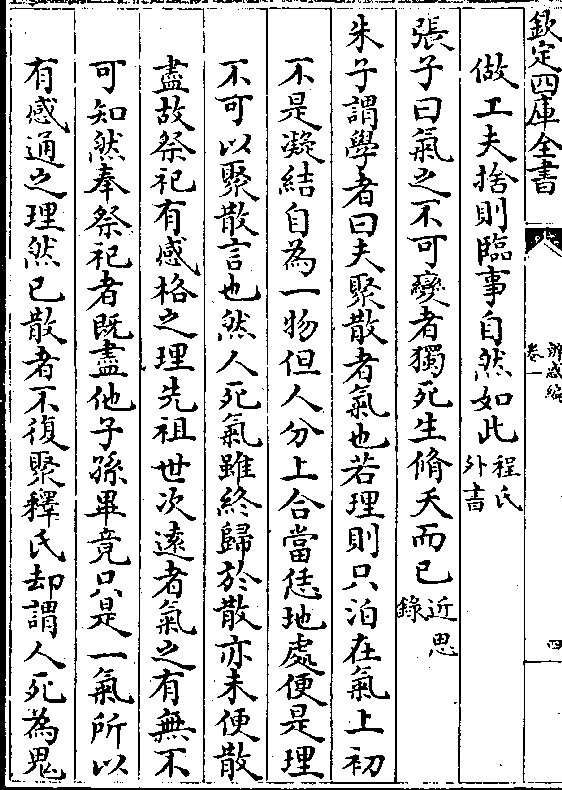 欽定四庫全書
辨惑編
卷一
四
做工夫捨則臨事自然如此程氏外書
張子曰氣之不可變者獨死生脩夭而已近思錄
朱子謂學者曰夫聚散者氣也若理則只泊在氣上初
不是凝結自為一物但人分上合當恁地處便是理
不可以聚散言也然人死氣雖終歸於散亦未便散
盡故祭祀有感格之理先祖世次遠者氣之有無不
可知然奉祭祀者既盡他子孫畢竟只是一氣所以
有感通之理然已散者不復聚釋氏却謂人死為鬼